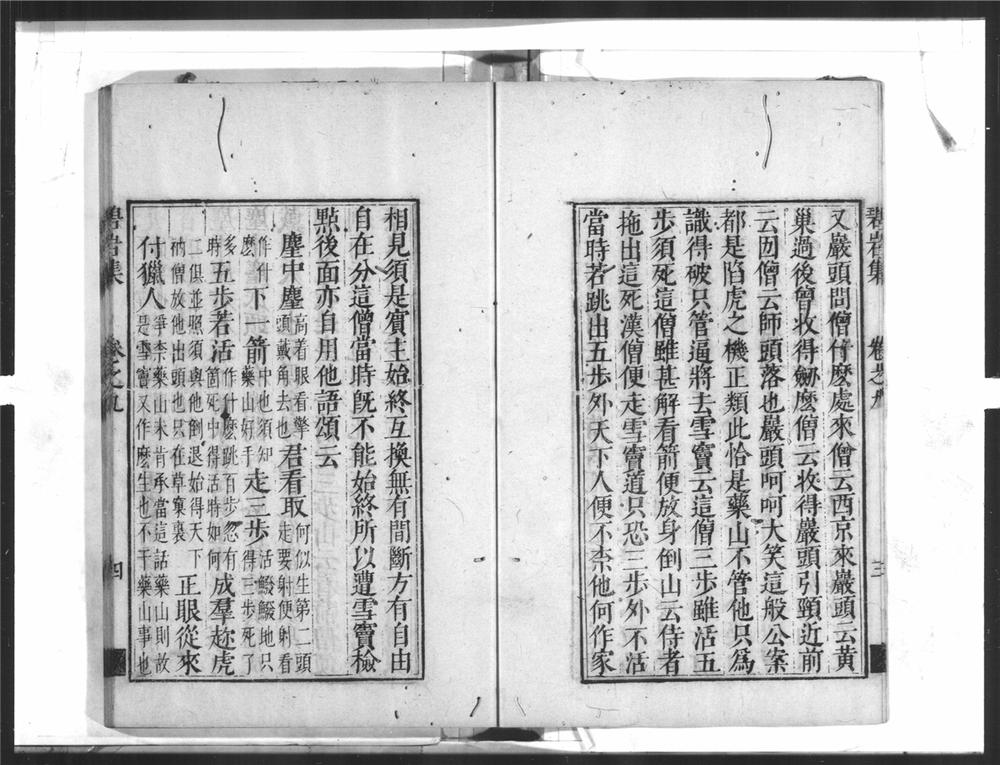 碧岩集 卷之九 三
又嚴頭問僧什麼處來僧云西京來嚴頭云黃
巢過後曾收得劒麼僧云收得嚴頭引頸近前
云囡僧云師頭落也嚴頭呵呵大笑這般公案
都是陷虎之機正類此恰是藥山不管他只爲
識得破只管逼將去雪竇云這僧三步雖活五
步須死這僧雖甚解看箭便放身倒山云侍者
拖出這死漢僧便走雪竇道只恐三步外不活
當時若跳出五步外天下人便不柰他何作家
相見須是賓主始終互換無有間斷方有自由
自在分這僧當時旣不能始終所以遭雪竇檢
點後面亦自用他語頌云
塵中塵高着眼看擎頭戴角去也君看取何似生第二頭走要射便射看
作什麼下一箭中也須知藥山好手走三步活鱍鱍地只得三步死了
多時五步若活作什麼跳百步忽有箇死中得活時如何成羣趂虎
二俱並照須與他倒退始得天下衲僧放他出頭也只在草窠裏正眼從來
付獵人爭柰藥山未肯承當這話藥山則故是雪竇又作麼生也不干藥山事也
碧岩集 卷之九 四